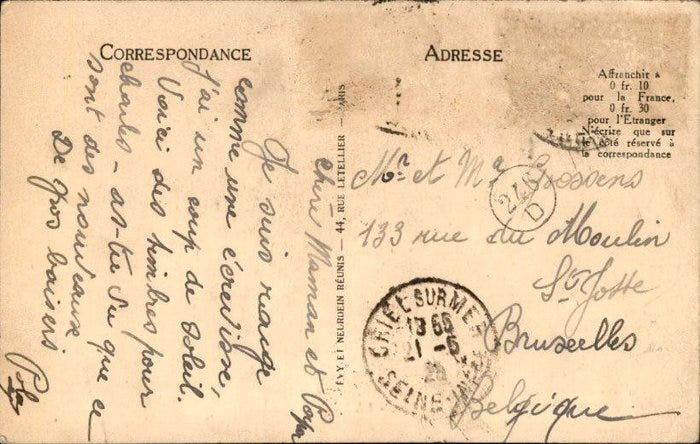 CORRESPONDANCE
chère Maman et Papa
Je suis rouge
comme une écrevisse,
J'ai un coup de soleil.
Voici des timbres pour
charles - as-tu vu que ce
sont des nouveaux
De gros baisers
LEVY ET NEURDEIN RÉUNIS — 44, RUE LETELLIER — PARIS
ADRESSE
Affranchir à
0 fr. 10
pour la France,
0 fr. 30
pour l'Etranger
N'écrire que sur
le côté réservé à
la correspondance
Mr et Me Goossens
133 rue du Moulin
St Josse
Bruxelles
Belgique
246
D
CRIEL SUR MER
21 -5
SEINE